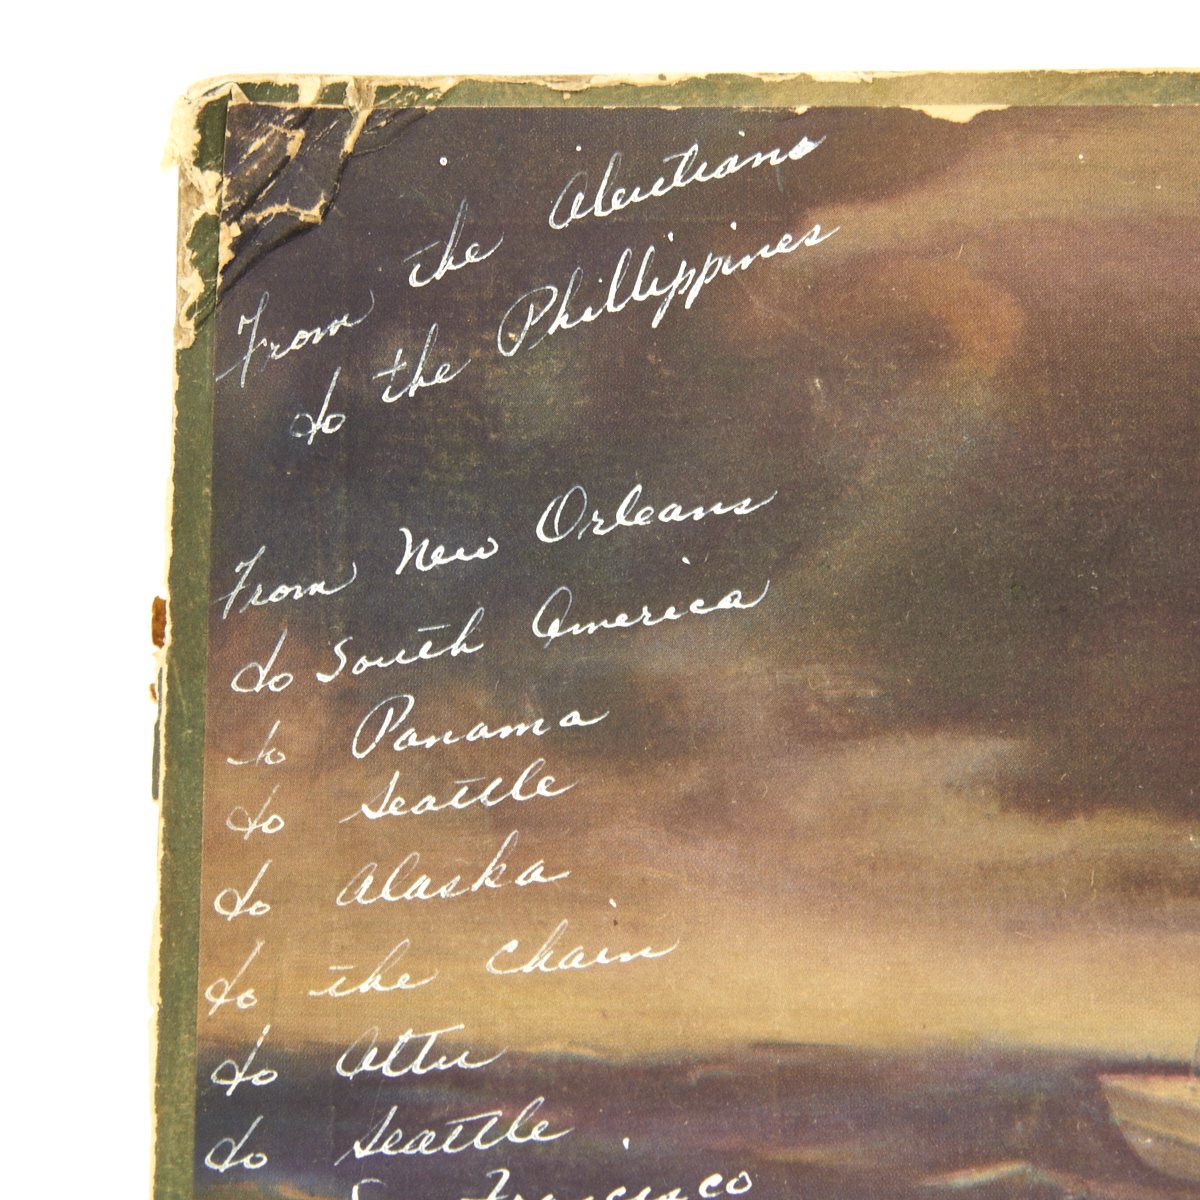 From the Aleutians
to the Phillippines
From New Orleans
to South America
to Panama
to Seattle
to Alaska
to the Chain
to Attu
to Seattle
San Francisco